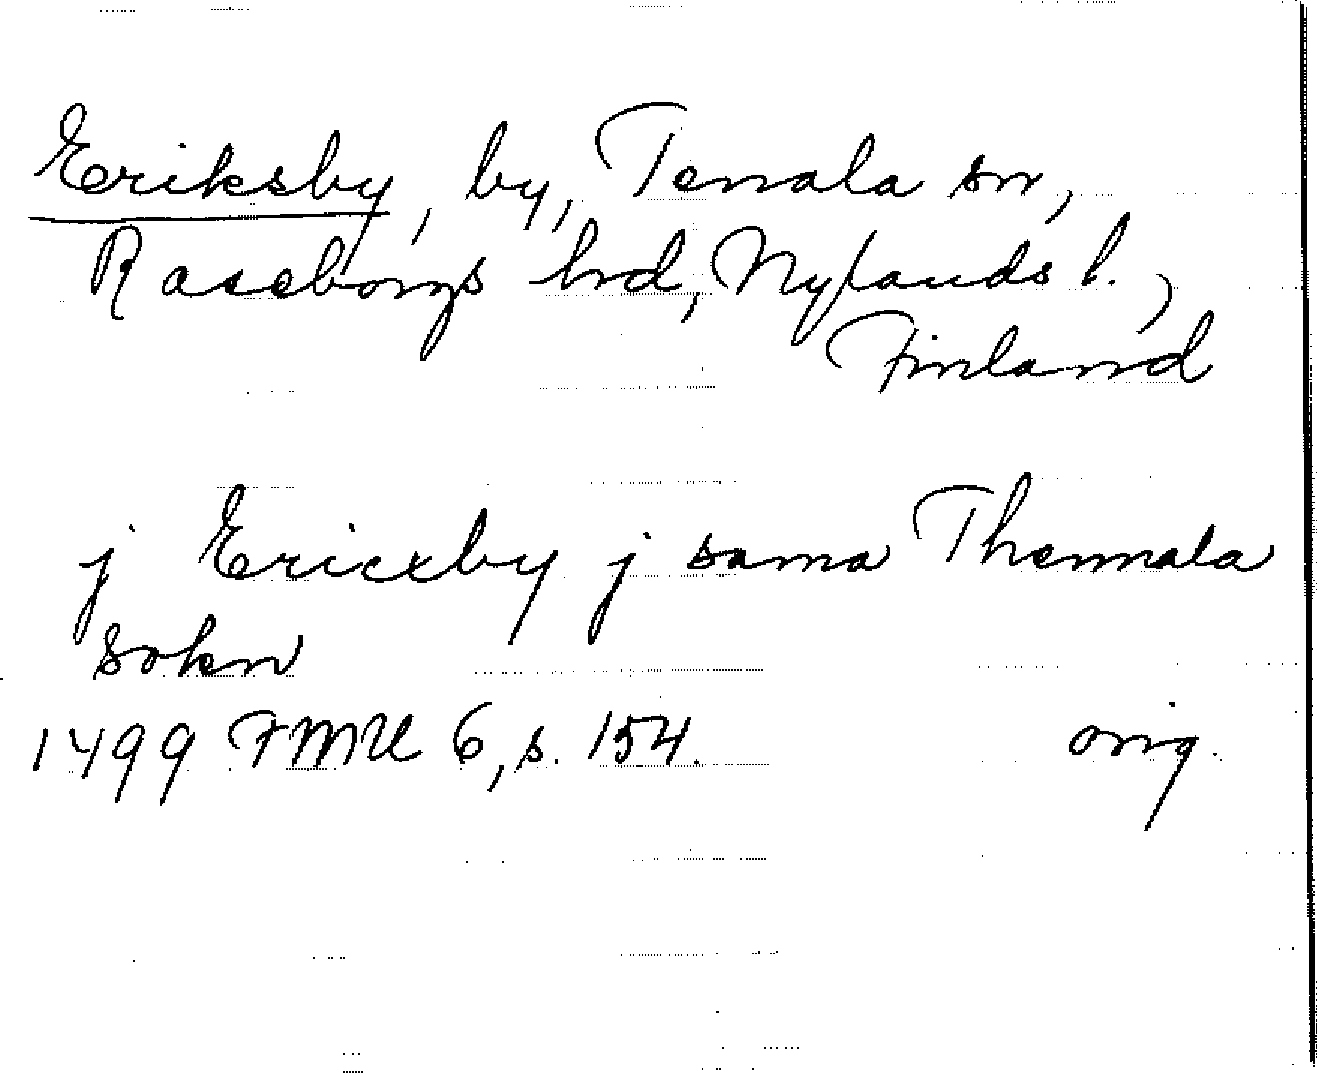 Eriksby, by, Tenala sn,
Raseborgs hrd, Nylands l.,
Finland
j Ericxby j sama Thennala
sokn
1499 FMU 6, s. 154. orig.